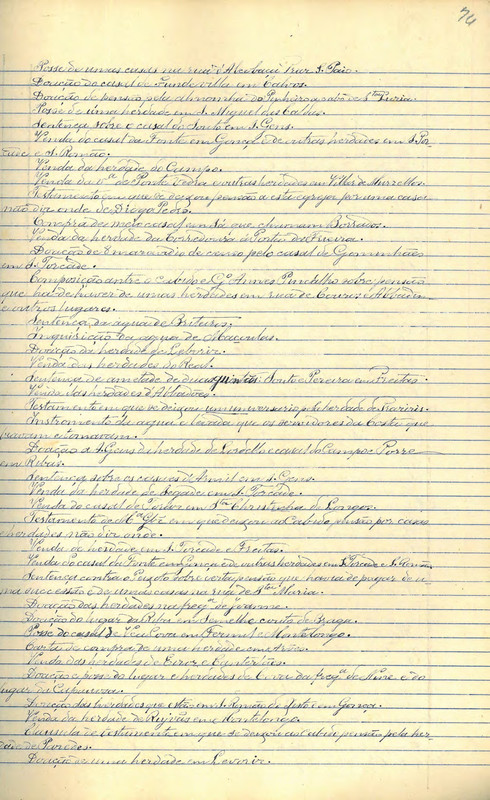 74
Posse de umas casas na rua d'Alcobaça Trav. S. Paio.
Doação do casal de Fundevilla em Calvos.
Doação de pensão pela almoinha do Pinheiro a rabo de S.ta Luzia.
Posse de uma herdade em S. Miguel das Caldas.
Sentença sobre o casal do Souto em S. Gens.
Venda do casal da Fonte em Gonça e de outras herdades em S. Tor-
cade e S. Romão.
Venda da herdade do Campo.
Venda da Ponte Pedra e outras herdades em Villar de Murzellos.
Testamento em que se deixou pensão a esta egreja por uma casa
não diz onde, de Diogo Pedro.
Compra de meio casal em Sá que chamam Bordados.
Venda da herdade da Corredoura á Porta da Freira.
Doação de 8 maravedis de censo pelo casal de Gominhães
em S. Torcade.
Composição entre o Cabido e G.º Annes Pincelho sobre pensão
que ha de haver de umas herdades em rua de Couros e Atouguia
e outros lugares.
Sentença da agua de Briteiros.
Inquirição da agua de Maçoulas.
Doação da herdade de
Venda das herdades do Real.
Sentença de ametade de duas quintãs Souto e Pereira em Freitas.
Venda das herdades d'Abbadões.
Testamento em que se deixou um anniversario pela herdade de Rariris.
Instromento da agua e levada que os servidores da Costa que
travam e tomavam.
Doação a S. Gens da herdade de Lordello e casal do Campo e Porre
em Ribas.
Sentença sobre os casaes d'Armil em S. Gens.
Venda da herdade de Segade em S. Torcade.
Venda do casal de em S.ta Christinha de Longos.
Testamento de M.el Glz em que deixou ao Cabido pensão por casas
e herdades não diz onde.
Venda de herdade em S. Torcade e Freitas.
Venda do casal da Fonte em Gonça e de outras herdades em S. Torcade e S. Romão.
Sentença contra o sobre certa pensão que havia de pagar de u-
ma que está e de umas casas na rua de S.ta Maria.
Doação das herdades na freg.ª de
Doação do lugar da Ribas em Semelhe couto de Braga.
Posse do casal de Cova em Fermil e Mantelongo.
Carta de compra de uma herdade em Arões.
Venda das herdades de Eiros e Canteriães.
Doação e posse do lugar e herdades de da freg.ª de Nine e do
lugar da
Doação das herdades que estão em S. Romão de Aste em Gonça.
Venda da herdade de Ruyvás em Montelongo.
Clausula de testamento em que se deixou ao Cabido pensão pela her-
dade de Paredes.
Doação de uma herdade em